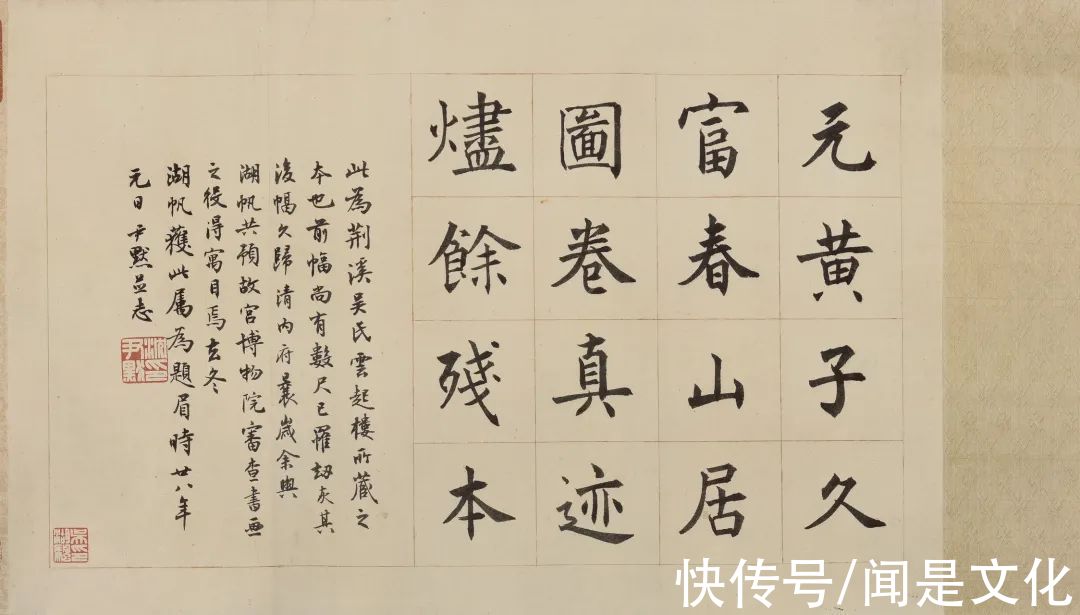 元黄子久
富春山居
圖卷真迹
燼餘殘本
此為荆溪吴氏雲起樓所藏之
本也前幅尚有數尺已罹劫灰其
後幅久歸清内府曩歲余與
湖帆共領故宫博物院審查書畫
之役得寓目焉去冬
湖帆獲此属為題眉時廿八年
元日尹默并志
沈尹默
快传号/闻是文化